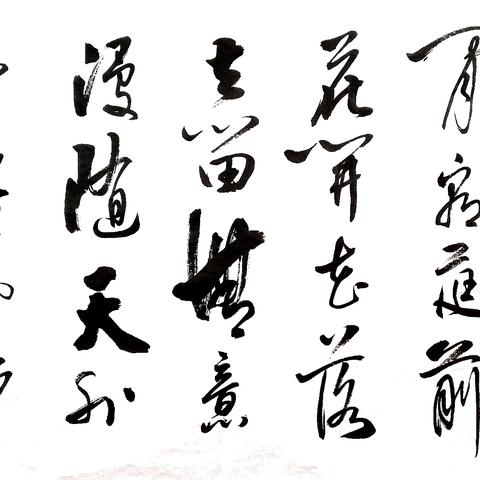 庭前
花開花落
去留無意
漫随天外